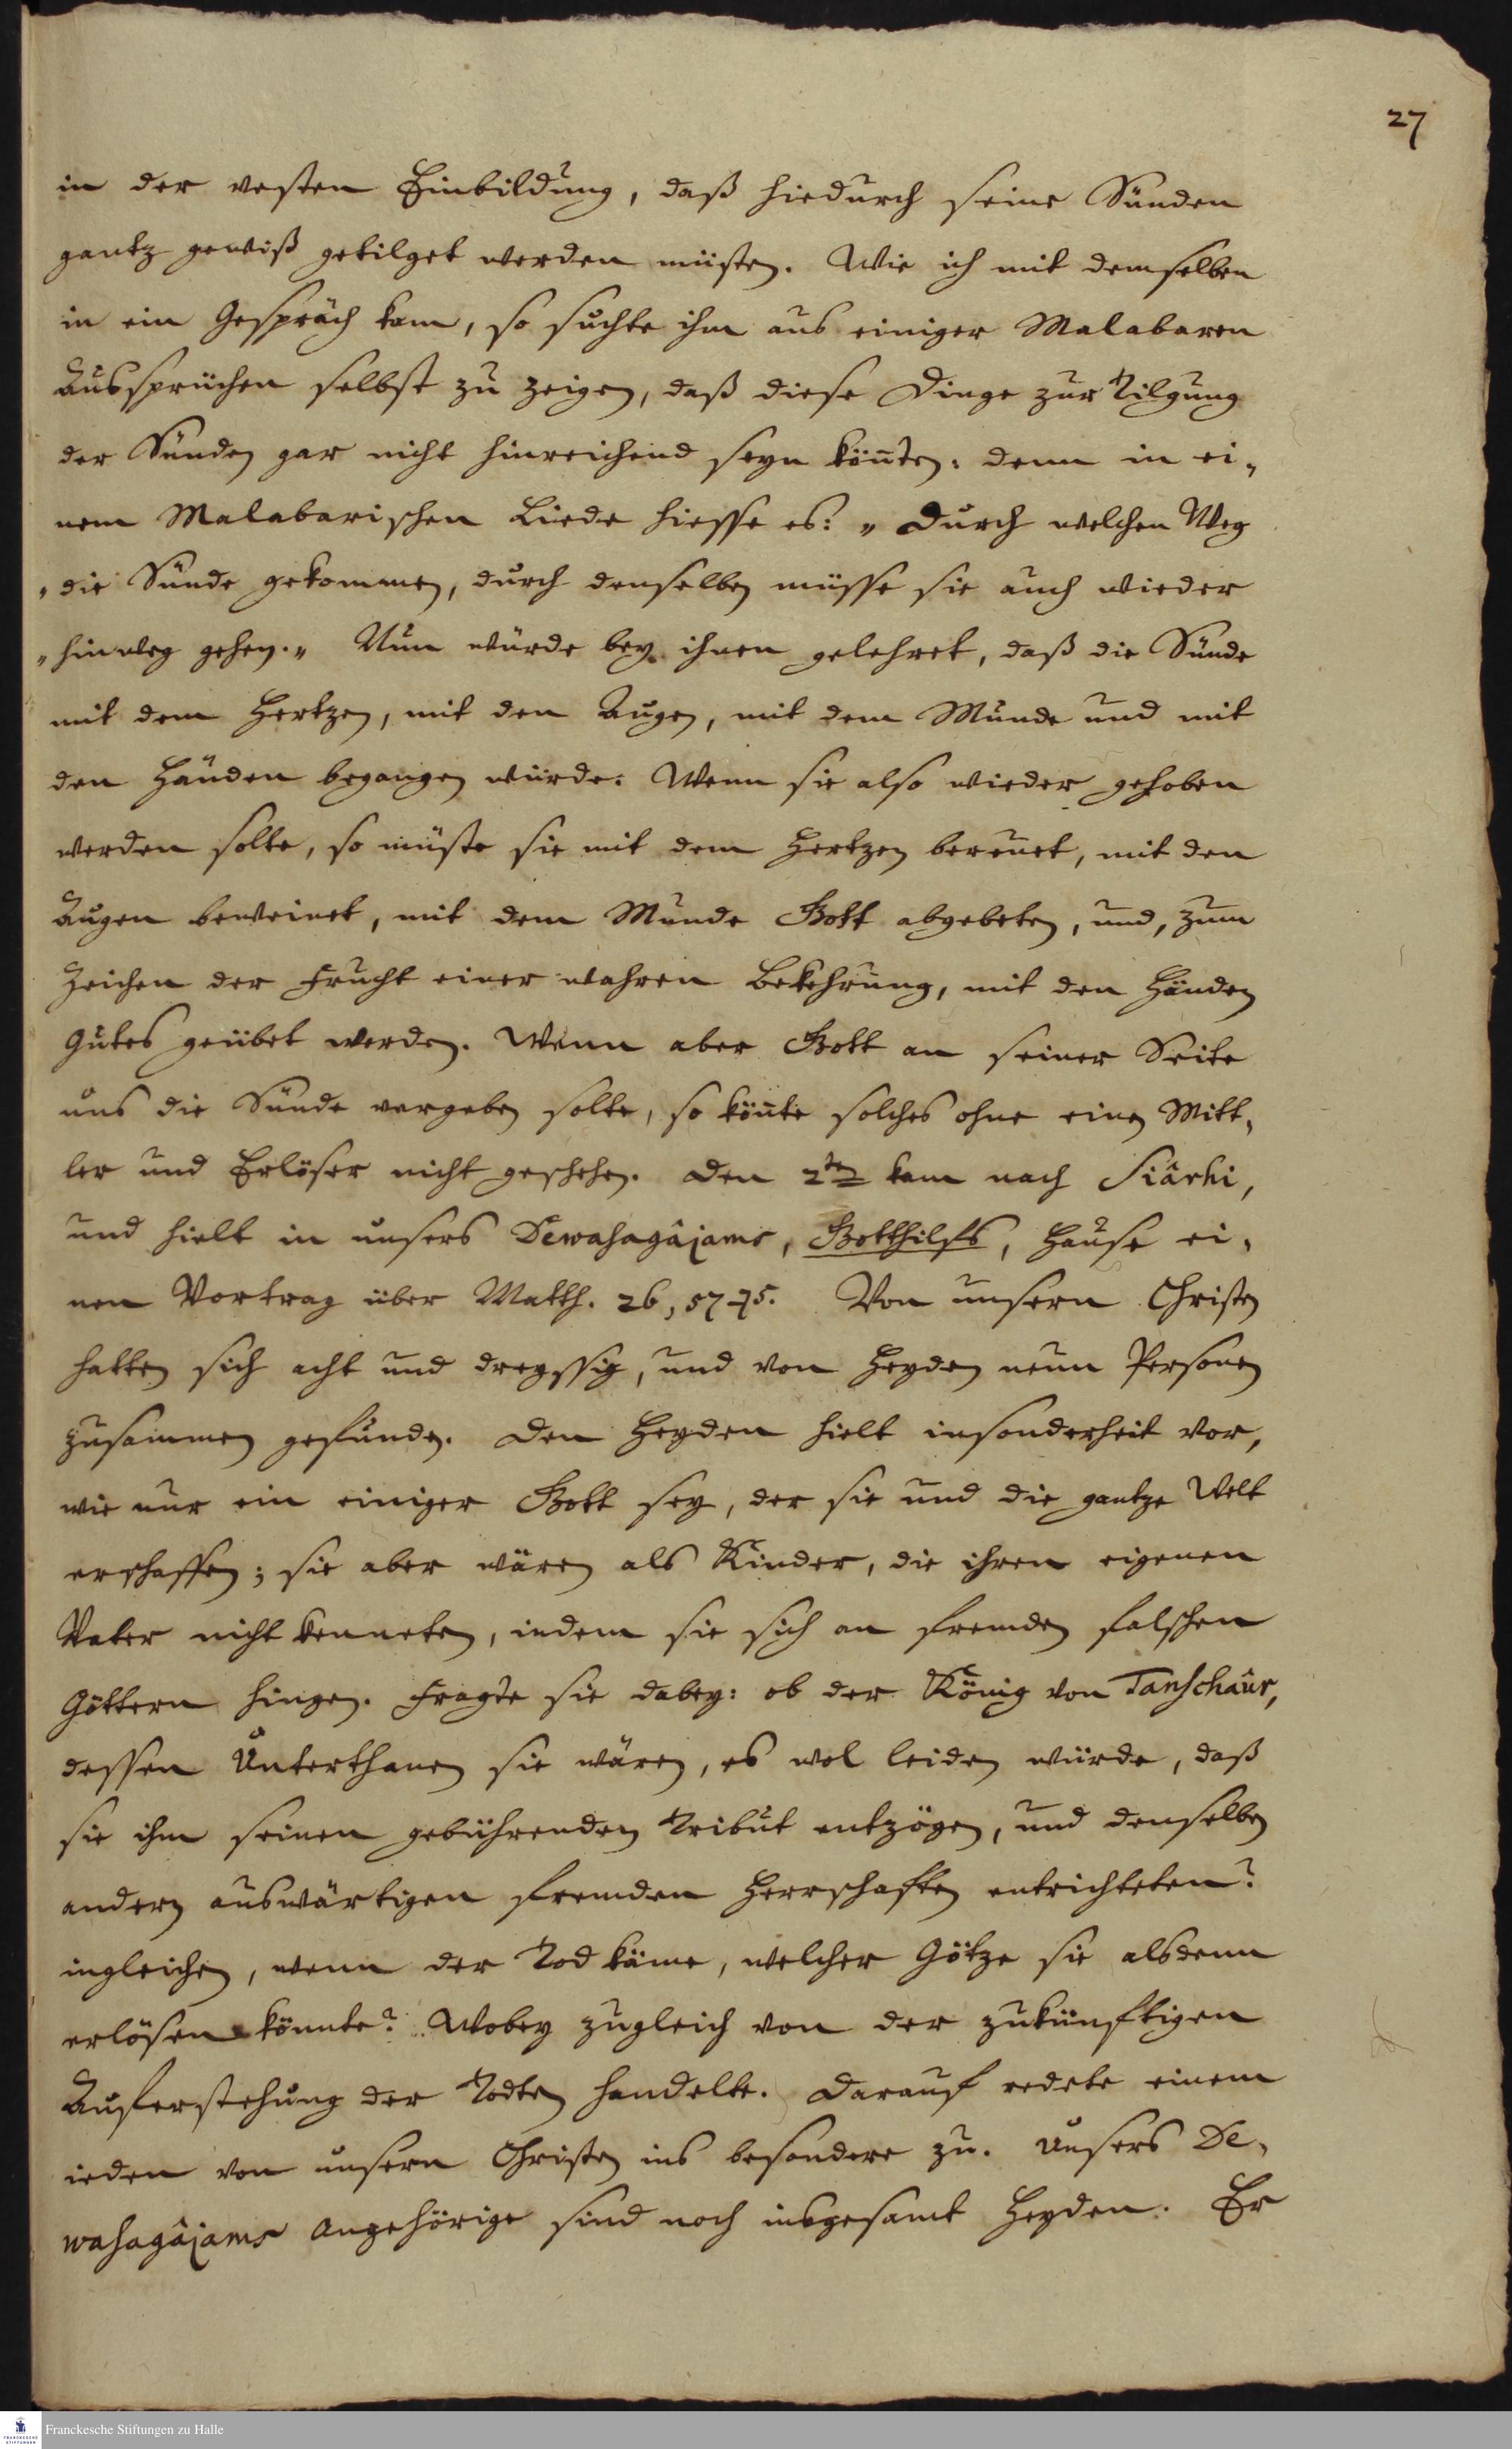 27
in der vesten Einbildung, daß hiedurch seine Sünden
gantz gewiß getilget werden müsten. Wie ich mit demselben
in ein Gespräch kam, so suchte ihm aus einiger Malabaren
Aussprüchen selbst zu zeigen, daß diese Dinge zur Tilgung
der Sünden gar nicht hinreichend seyn kön̄ten: denn in ei„
nem Malabarischen Liede hiesse es: „Durch welchen Weg
„die Sünde gekommen, durch denselben müsse sie auch wieder
„hinweg gehen.„ Nun würde bey ihnen gelehret, daß die Sünde
mit dem Hertzen, mit den Augen, mit dem Munde und mit
den Händen begangen würde: Wenn sie also wieder gehoben
werden solte, so müste sie mit dem Hertzen bereuet, mit den
Augen beweinet, mit dem Munde Gott abgebeten, und, zum
Zeichen der Frucht einer wahren Bekehrung, mit den Händen
Gutes geübet werden. Wenn aber Gott an seiner Seite
uns die Sünde vergeben solte, so kön̄te solches ohne einen Mitt„
ler und Erlöser nicht geschehen. Den 2ten kam nach Siârhi,
und hielt in unsers Dewasagâjams, Gotthilfs, Hause ei„
nen Vortrag über Matth. 26, 57-75. Von unsern Christen
hatten sich acht und dreyssig, und von Heyden neun Personen
zusammen gefunden. Den Heyden hielt insonderheit vor,
wie nur ein einiger Gott sey, der sie und die gantze Welt
erschaffen; sie aber wären als Kinder, die ihren eigenen
Vater nicht kenneten, indem sie sich an fremden falschen
Göttern hingen. Fragte sie dabey: ob der König von Tanschâur,
dessen Unterthanen sie wären, es wol leiden würde, daß
sie ihm seinen gebührenden Tribut entzögen, und denselben
andern auswärtigen fremden Herrschaften entrichteten?
ingleichen, wenn der Tod käme, welcher Götze sie alsdenn
erlösen könnte? Wobey zugleich von der zukünftigen
Auferstehung der Todten handelte. Darauf redete einem
ieden von unsern Christen ins besondere zu. Unsers De„
wasagâjams Angehörige sind noch insgesamt Heyden. Er
FRANCKESCHE
STIFTUNGEN
Franckesche Stiftungen zu Halle